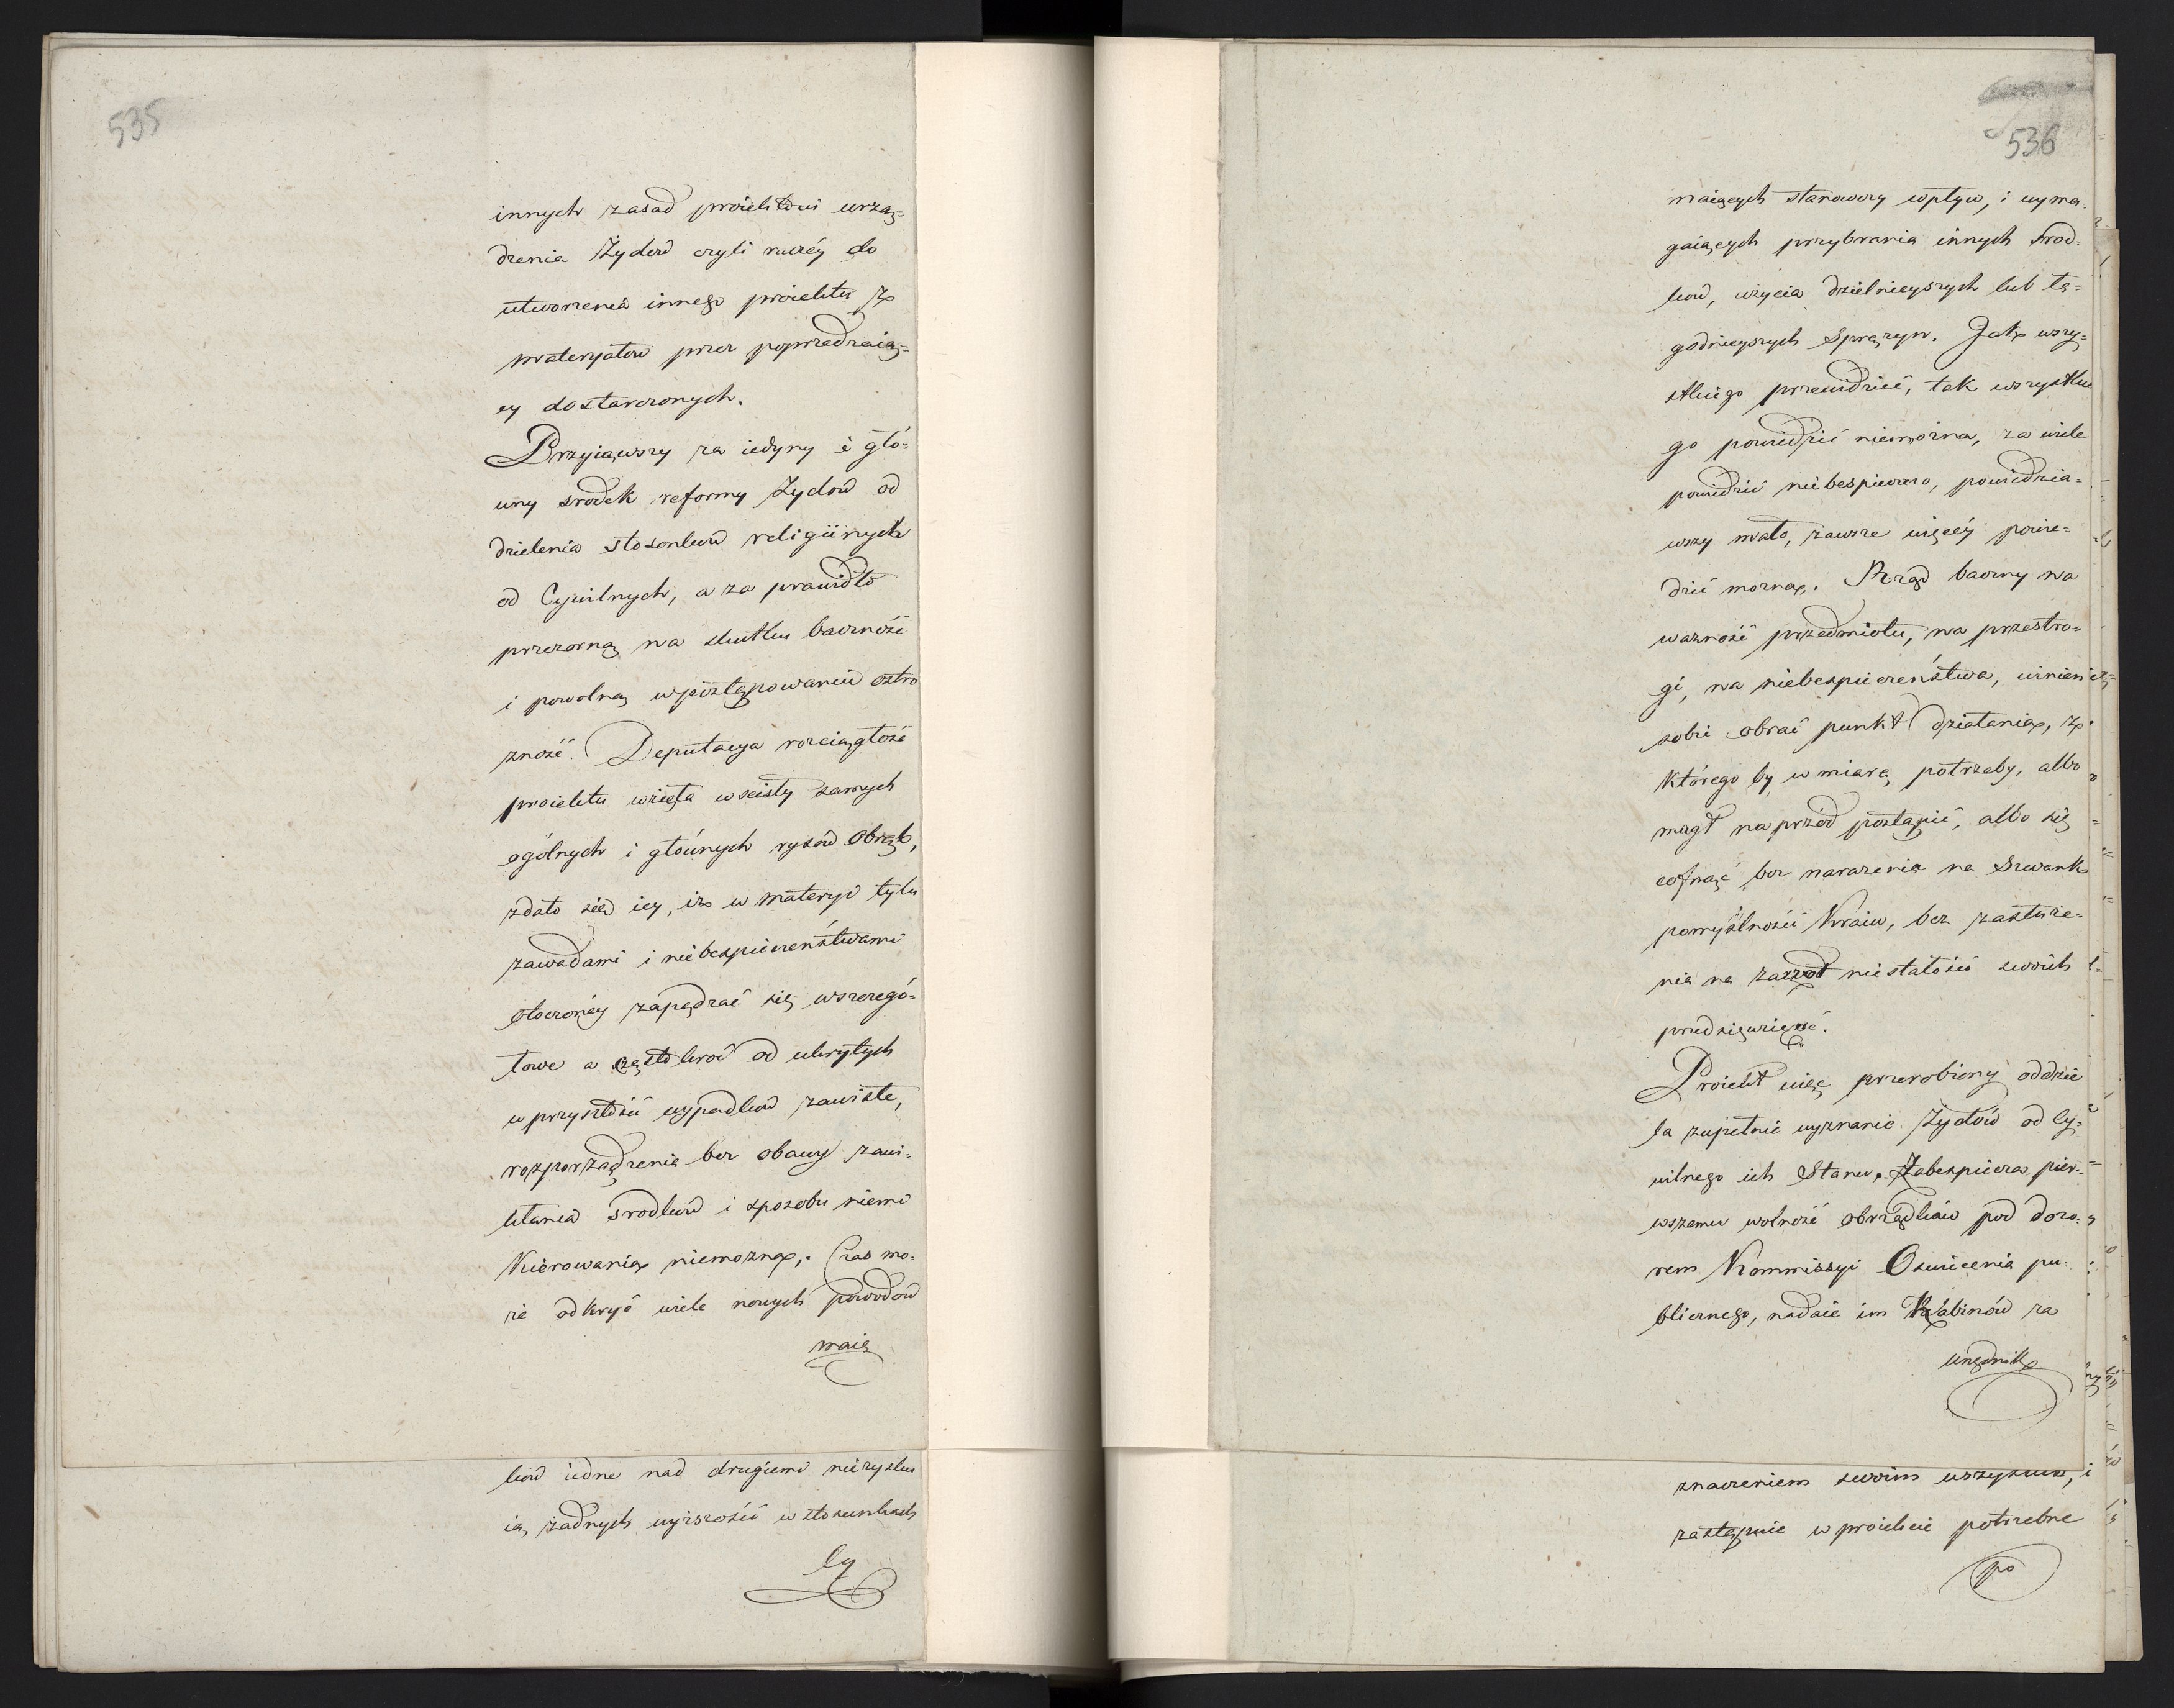 535
innych zasad proiektowi urzą=
dzenia Żydów czyli raczéy do
utworzenia innego proiektu z
materyałów przez poprzedzaią=
cy dostarczonych.
Przyiąwszy za iedyny i głó=
wny srodek reformy Żydów od
dzielenia stosonków religiinych
od Cywilnych, a za prawidło
przezorną na skutku baczność
i powolną w postępowaniu ostro
zność. Deputacya rozciągłość
proiektu wzięła w scisły samych
ogólnych i głównych rysów obręb,
zdało się iey, iż w materyi tylu
zawadami i niebespieczeństwami
otoczonéy zapędzać się w szczegó=
łowe a częstokroć od ukrytych
w przyszłości wypadków zawisłe,
rozporządzenia bez obawy zawi=
kłania srodków i sposobu niemi
kierowania niemozna. Czas mo=
ze odkryć wiele nowych powodów
maią
ków iedne nad drugiemi niezysku
ią, żadnych wyzszości w stosunkach
Cy
536
maiących stanowczy wpływ, i wyma=
gaiących przybrania innych srod=
ków, uzycia dzielnieyszych lub ła=
godnieyszych sprężyn. Jak wszy=
stkiego przewidzieć, tak wszystkie
go powiedzieć niemożna, za wiele
powiedzieć niebespieczno, powiedzia=
wszy mało, zawsze więcéy powie=
dzić mozna. Rząd baczny na
wazność przedmiotu, na przestro=
gi, na niebespieczeństwa, winien
sobie obrać punkt działania, z
którego by w miarę potrzeby, albo
mógł naprzód postąpić, albo się
cofnąć bez narazenia na szwank
pomyślności Kraiu, bez zasłuże=
nia na zarzut niestałości swoich
przedsięwzięć.
Proiekt więc przerobiony oddzie
la zupełnie wyznanie Żydów od Cy=
wilnego ich Stanu. Zabespiecza pier=
wszemu wolność obrządków pod dozo=
rem Kommissyi Oswiecenia pu=
blicznego, nadaie im Rabinów za
urzędnik
znaczeniem swoim wszystkim, i
zastępuie w proiekcie potrzebne
po